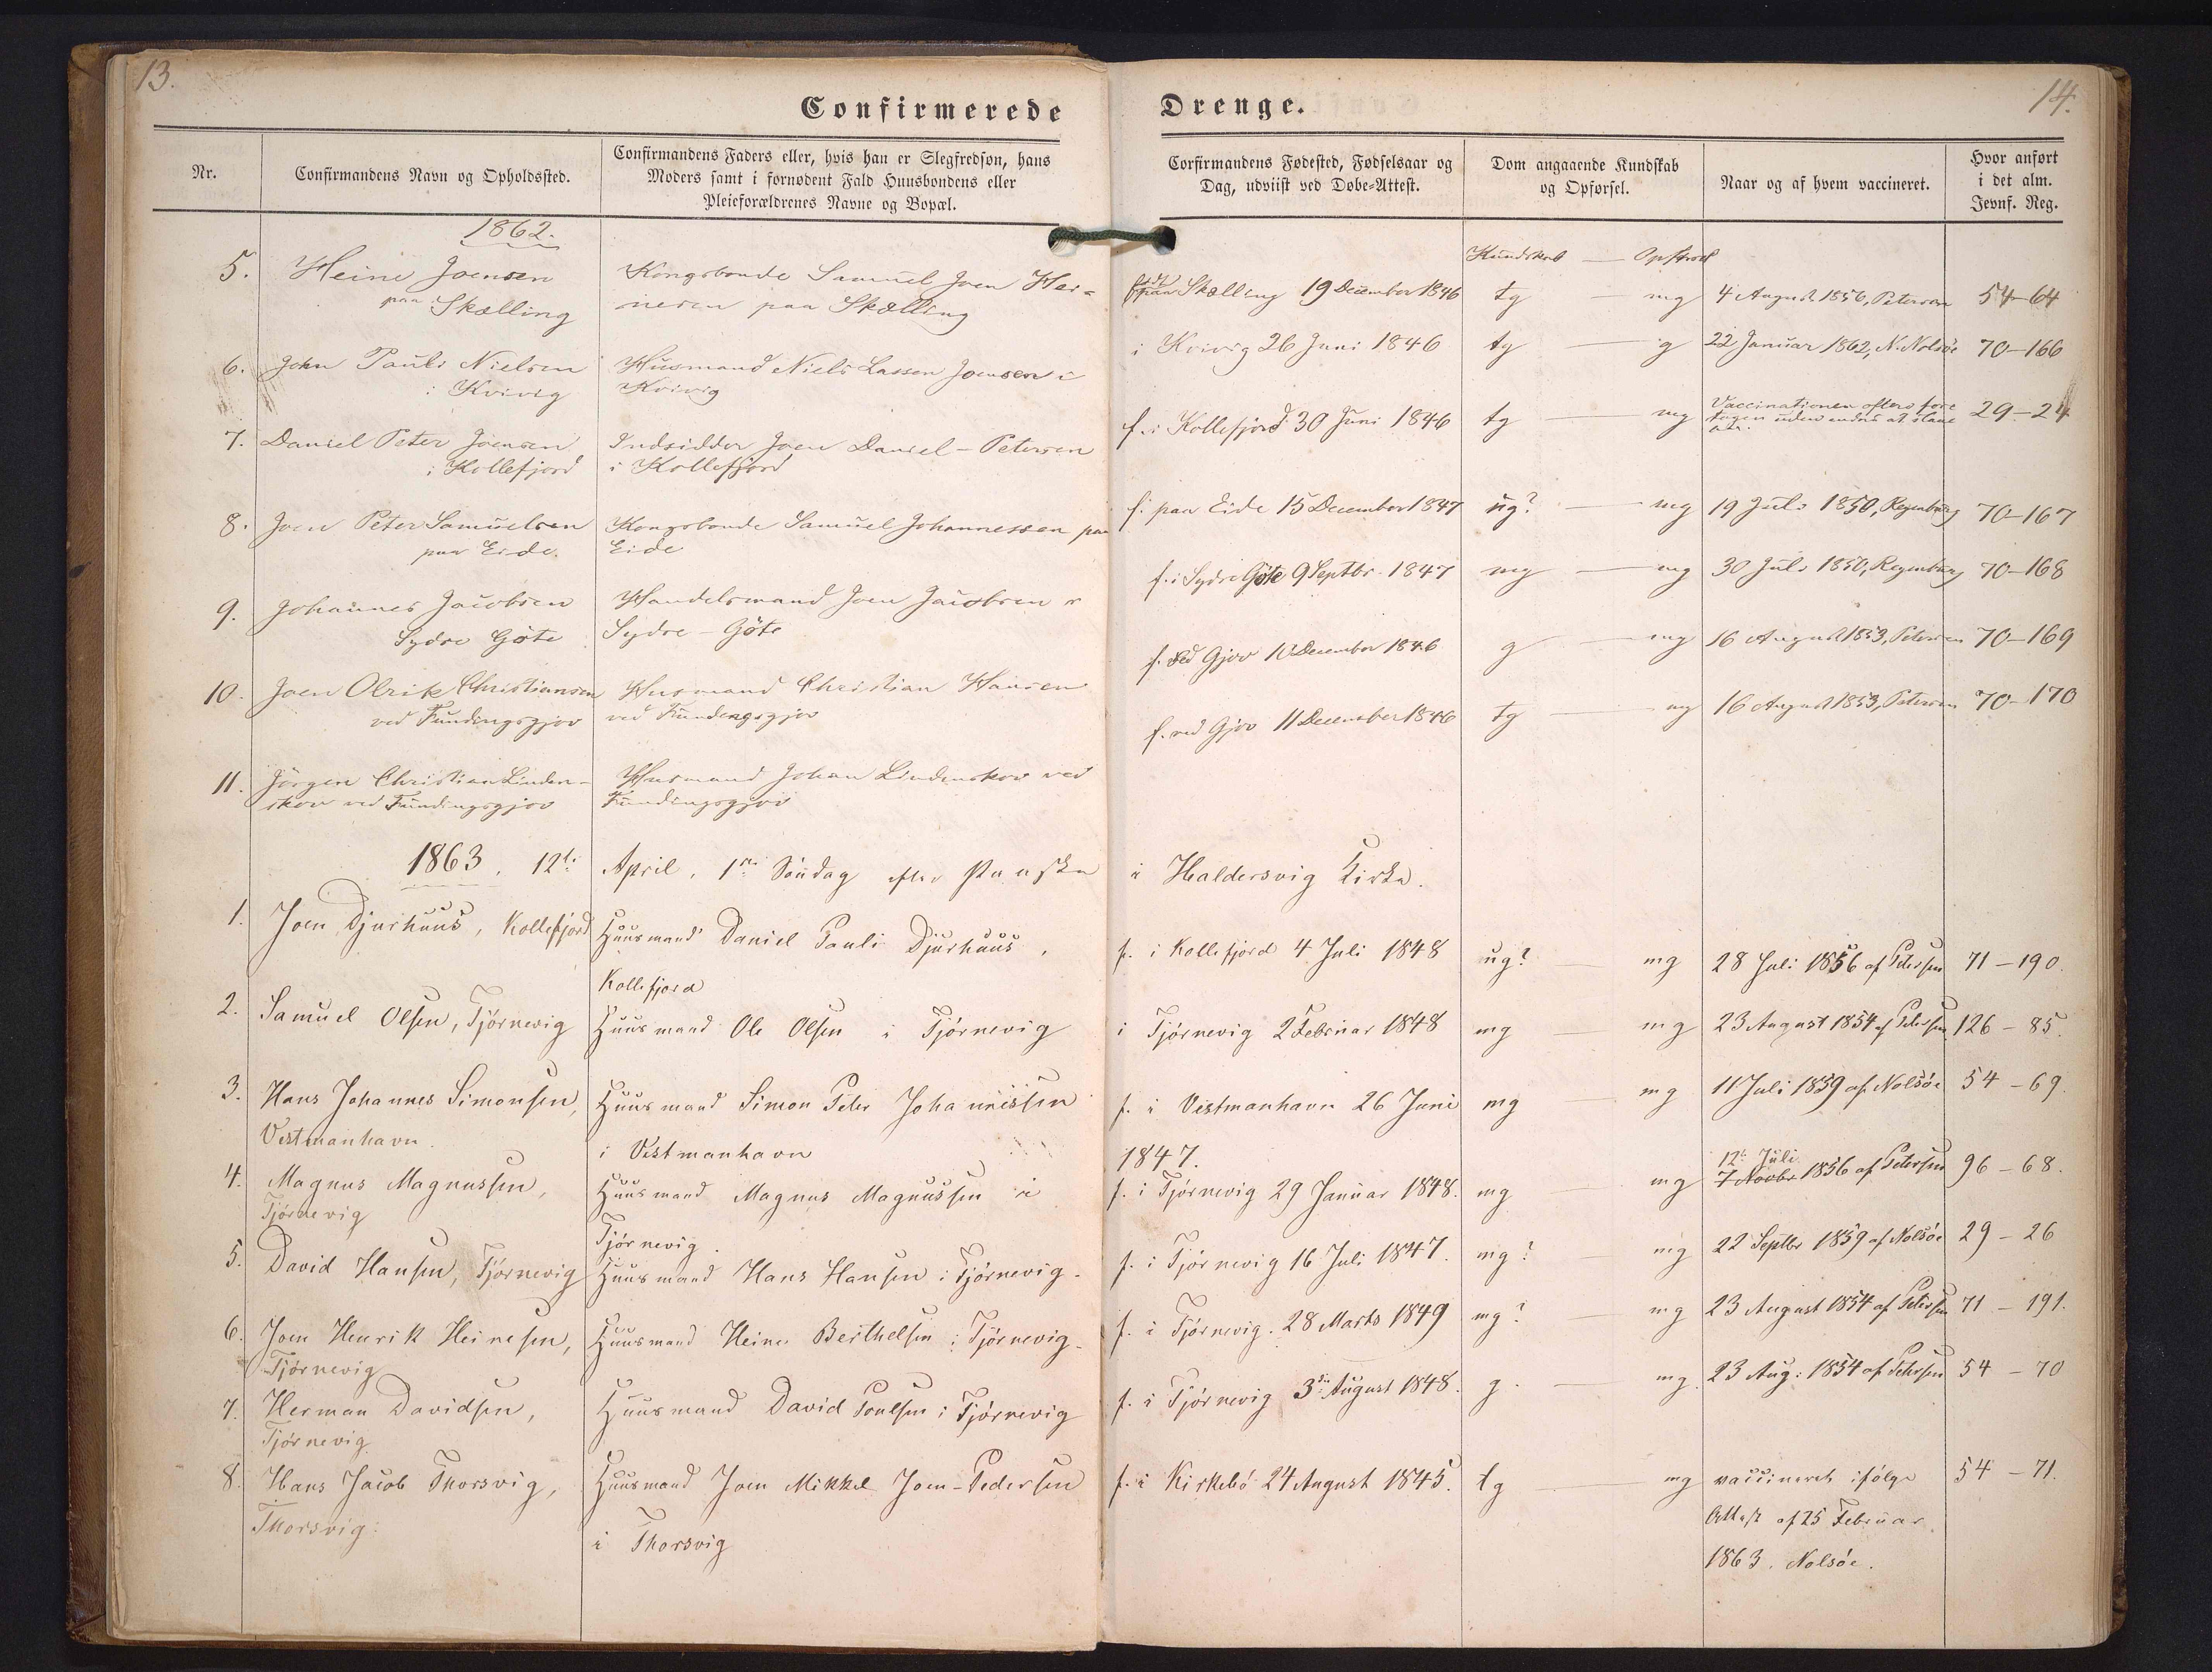 13.
Confirmerede
Drenge.
14.
Nr.
Confirmandens Navn og Opholdssted.
Confirmandens Faders eller, hvis han er Slegfredsøn, hans
Moders samt i fornødent Fald Huusbondens eller
Pleieforældrenes Navne og Bopæl.
Corfirmandens Fødested, Fødselsaar og
Dag, udviist ved Døbe-Attest.
Dom angaaende Kundskab
og Opførsel.
Naar og af hvem vaccineret.
Hvor anført
i det alm.
Jevnf. Reg.
1862.
Kundskab — Opførsel
5. Heine Joensen
paa Skælling
Kongsbonde Samuel Joen Hei-
nesen paa Skælling
paa Skælling 19 December 1846
tg — mg
4 August 1856, Petersen
54-64
6. John Pauli Nielsen
i Kvivig
Husmand Niels Lassen Joensen i
Kvivig
i Kvivig 26 Juni 1846
tg — g
22 Januar 1862, N. Nolsöe
70-166
7. Daniel Peter Joensen
i Kollefjord
Indsidder Joen Daniel-Petersen
i Kollefjord
f. i Kollefjord 30 Juni 1846
tg — mg
Vaccinationen oftere fore
tagen uden endnu at slaae
an.
29-24
8. Joen Peter Samuelsen
paa Eide.
Kongsbonde Samuel Johannessen paa
Eide
f. paa Eide 15 December 1847
ug? — mg
19 Juli 1850, Regenburg
70-167
9. Johannes Jacobsen
Sydre Göte
Handelsmand Joen Jacobsen
Sydre-Göte
f. i Sydre Göte 9 Septbr. 1847
mg — mg
30 Juli 1850, Regenburg
70-168
10. Joen Olrik Christiansen
ved Fundingsgjov
Husmand Christian Hansen
ved Fundingsgjov
f. ved Gjov 10 December 1846
g — mg
16 August 1853, Petersen
70-169
11. Jörgen Christian Linden-
skov ved Fundingsgjov
Husmand Johan Lindenskov ved
Fundingsgjov
f. ved Gjov 11 December 1846
tg — mg
16 August 1853, Petersen
70-170
1863. 12te April, 1ste Söndag efter Paaske i Haldersvig Kirke.
1. Joen Djurhuus, Kollefjord
Huusmand Daniel Pauli Djurhuus,
Kollefjord
f. i Kollefjord 4 Juli 1848
ug? — mg
28 Juli 1856 af Petersen
71-190.
2. Samuel Olsen, Tjörnevig
Huusmand Ole Olsen i Tjörnevig
i Tjörnevig 2 Februar 1848
mg — mg
23 August 1854 af Petersen
126-85.
3. Hans Johannes Simonsen,
Vestmanhavn.
Huusmand Simon Peter Johannissen
i Vestmanhavn
f. i Vestmanhavn 26 Juni
1847.
mg — mg
11 Juli 1859 af Nolsöe
54-69.
4. Magnus Magnussen,
Tjörnevig
Huusmand Magnus Magnussen i
Tjörnevig.
f. i Tjörnevig 29 Januar 1848.
mg — mg
12te Juli
7 Novbr 1856 af Petersen
96-68.
5. David Hansen, Tjörnevig
Huusmand Hans Hansen i Tjörnevig.
f. i Tjörnevig 16 Juli 1847.
mg? — mg
22 Septbr 1859 af Nolsöe
29-26
6. Joen Henrik Heinesen,
Tjörnevig
Huusmand Heine Berthelsen i Tjörnevig.
f. i Tjörnevig. 28 Marts 1849
mg? — mg
23 August 1854 af Petersen
71-191.
7. Herman Davidsen,
Tjörnevig
Huusmand David Poulsen i Tjörnevig
f. i Tjörnevig 3die August 1848.
g. — mg.
23 Aug: 1854 af Petersen
54-70
8. Hans Jacob Thorsvig,
Thorsvig.
Huusmand Joen Mikkel Joen-Pedersen
i Thorsvig
f. i Kirkebö 24 August 1845.
tg — mg
vaccineret ifölge
Attest af 25 Februar
1863. Nolsöe.
54-71.